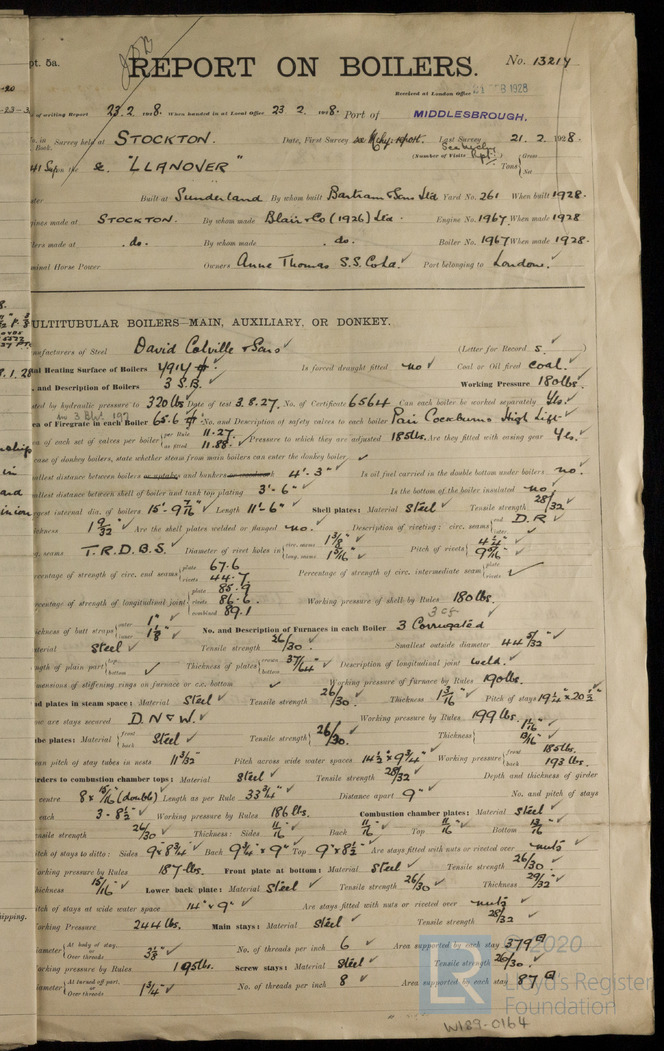 pt. 5a.
REPORT ON BOILERS.
No. 13214
Received at London Office FEB 1928
of writing Report 23.2 1928. When handed in at Local Office 23 2 1928. Port of MIDDLESBROUGH.
Survey held at STOCKTON. Date, First Survey see Mchy. report. Last Survey 21. 2. 1928.
on the sc. "LLANOVER" (Number of Visits see Mchy Rpt.) Tons { Gross Net
Built at Sunderland By whom built Bartram & Sons Ltd Yard No. 261 When built 1928.
gines made at STOCKTON. By whom made Blair & Co (1926) Ltd. Engine No. 1967 When made 1928
lers made at do. By whom made do. Boiler No. 1967 When made 1928.
minal Horse Power Owners Anne Thomas S.S. Co Ltd. Port belonging to London.
ULTITUBULAR BOILERS—MAIN, AUXILIARY, OR DONKEY.
nufacturers of Steel David Colville & Sons ✓ (Letter for Record S. ✓
al Heating Surface of Boilers 4914 ✓ Is forced draught fitted no ✓ Coal or Oil fired coal. ✓
. and Description of Boilers 3 S.B. ✓ Working Pressure 180 lbs.
sted by hydraulic pressure to 320 lbs Date of test 3.8.27. No. of Certificate 6564 Can each boiler be worked separately Yes. ✓
ea of Firegrate in each Boiler 65.6 No. and Description of safety valves to each boiler Pair Cockburns High Lift ✓
ea of each set of valves per boiler { per Rule 11.27. as fitted 11.88 ✓ Pressure to which they are adjusted 185 lbs. Are they fitted with easing gear Yes. ✓
case of donkey boilers, state whether steam from main boilers can enter the donkey boiler ✓
mallest distance between boilers or uptakes and bunkers or woodwork 4'-3" ✓ Is oil fuel carried in the double bottom under boilers no.
mallest distance between shell of boiler and tank top plating 3'-6" ✓ Is the bottom of the boiler insulated no
rgest internal dia. of boilers 15'-9 7/16" ✓ Length 11'-6" ✓ Shell plates: Material Steel ✓ Tensile strength 28/32 ✓
hickness 1 9/32" ✓ Are the shell plates welded or flanged no. ✓ Description of riveting: circ. seams { end D.R ✓
g. seams T.R.D.B.S. ✓ Diameter of rivet holes in { circ. seams 1 3/8" long. seams 1 5/16" ✓ Pitch of rivets { ✓
rcentage of strength of circ. end seams { plate 67.6 rivets 44.7 Percentage of strength of circ. intermediate seam { plate rivets ✓
rcentage of strength of longitudinal joint { plate 85.9 rivets 86.6. combined 89.1 Working pressure of shell by Rules 180 lbs.
hickness of butt straps { outer 1" inner 1 1/8" ✓ No. and Description of Furnaces in each Boiler 3 Corrugated
3 cf
aterial Steel ✓ Tensile strength 26/30 ✓ Smallest outside diameter 44 5/32" ✓
ngth of plain part { top bottom ✓ Thickness of plates { crown bottom 37/64" ✓ Description of longitudinal joint weld. ✓
imensions of stiffening rings on furnace or c.c. bottom ✓ Working pressure of furnace by Rules 190 lbs.
nd plates in steam space: Material Steel ✓ Tensile strength 26/30. ✓ Thickness 1 3/16" ✓ Pitch of stays 19 1/4" x 20 1/2" ✓
ow are stays secured D.N & W. ✓ Working pressure by Rules 199 lbs.
ube plates: Material { front back Steel ✓ Tensile strength { 26/30. ✓ Thickness { ✓
an pitch of stay tubes in nests 11 3/32" Pitch across wide water spaces 14 1/2" x 9 3/4" ✓ Working pressure { front 185 lbs. back 193 lbs.
irders to combustion chamber tops: Material Steel ✓ Tensile strength 28/32 ✓ Depth and thickness of girder
centre 8 x 15/16" (double) ✓ Length as per Rule 33 3/4" ✓ Distance apart 9" ✓ No. and pitch of stays
each 3 - 8 1/2" ✓ Working pressure by Rules 186 lbs. Combustion chamber plates: Material Steel ✓
nsile strength 26/30 ✓ Thickness: Sides 11/16" ✓ Back 11/16" ✓ Top 11/16" ✓ Bottom 13/16" ✓
itch of stays to ditto: Sides 9" x 8 3/4" ✓ Back 9 3/4" x 9" ✓ Top 9" x 8 1/2" ✓ Are stays fitted with nuts or riveted over nuts ✓
orking pressure by Rules 187 lbs. Front plate at bottom: Material Steel ✓ Tensile strength 26/30 ✓
hickness 15/16" ✓ Lower back plate: Material Steel ✓ Tensile strength 26/30 ✓ Thickness 29/32" ✓
itch of stays at wide water space 14" x 9" ✓ Are stays fitted with nuts or riveted over nuts ✓
orking Pressure 244 lbs. Main stays: Material Steel ✓ Tensile strength 28/32 ✓
iameter { At body of stay, or Over threads ✓ No. of threads per inch 6 ✓ Area supported by each stay 379
orking pressure by Rules 195 lbs. Screw stays: Material Steel ✓ Tensile strength 26/30. ✓
iameter { At turned off part, or Over threads 1 3/4" ✓ No. of threads per inch 8 ✓ Area supported by each stay 87
© 2020
LR
Lloyd's Register
Foundation
W189-0164